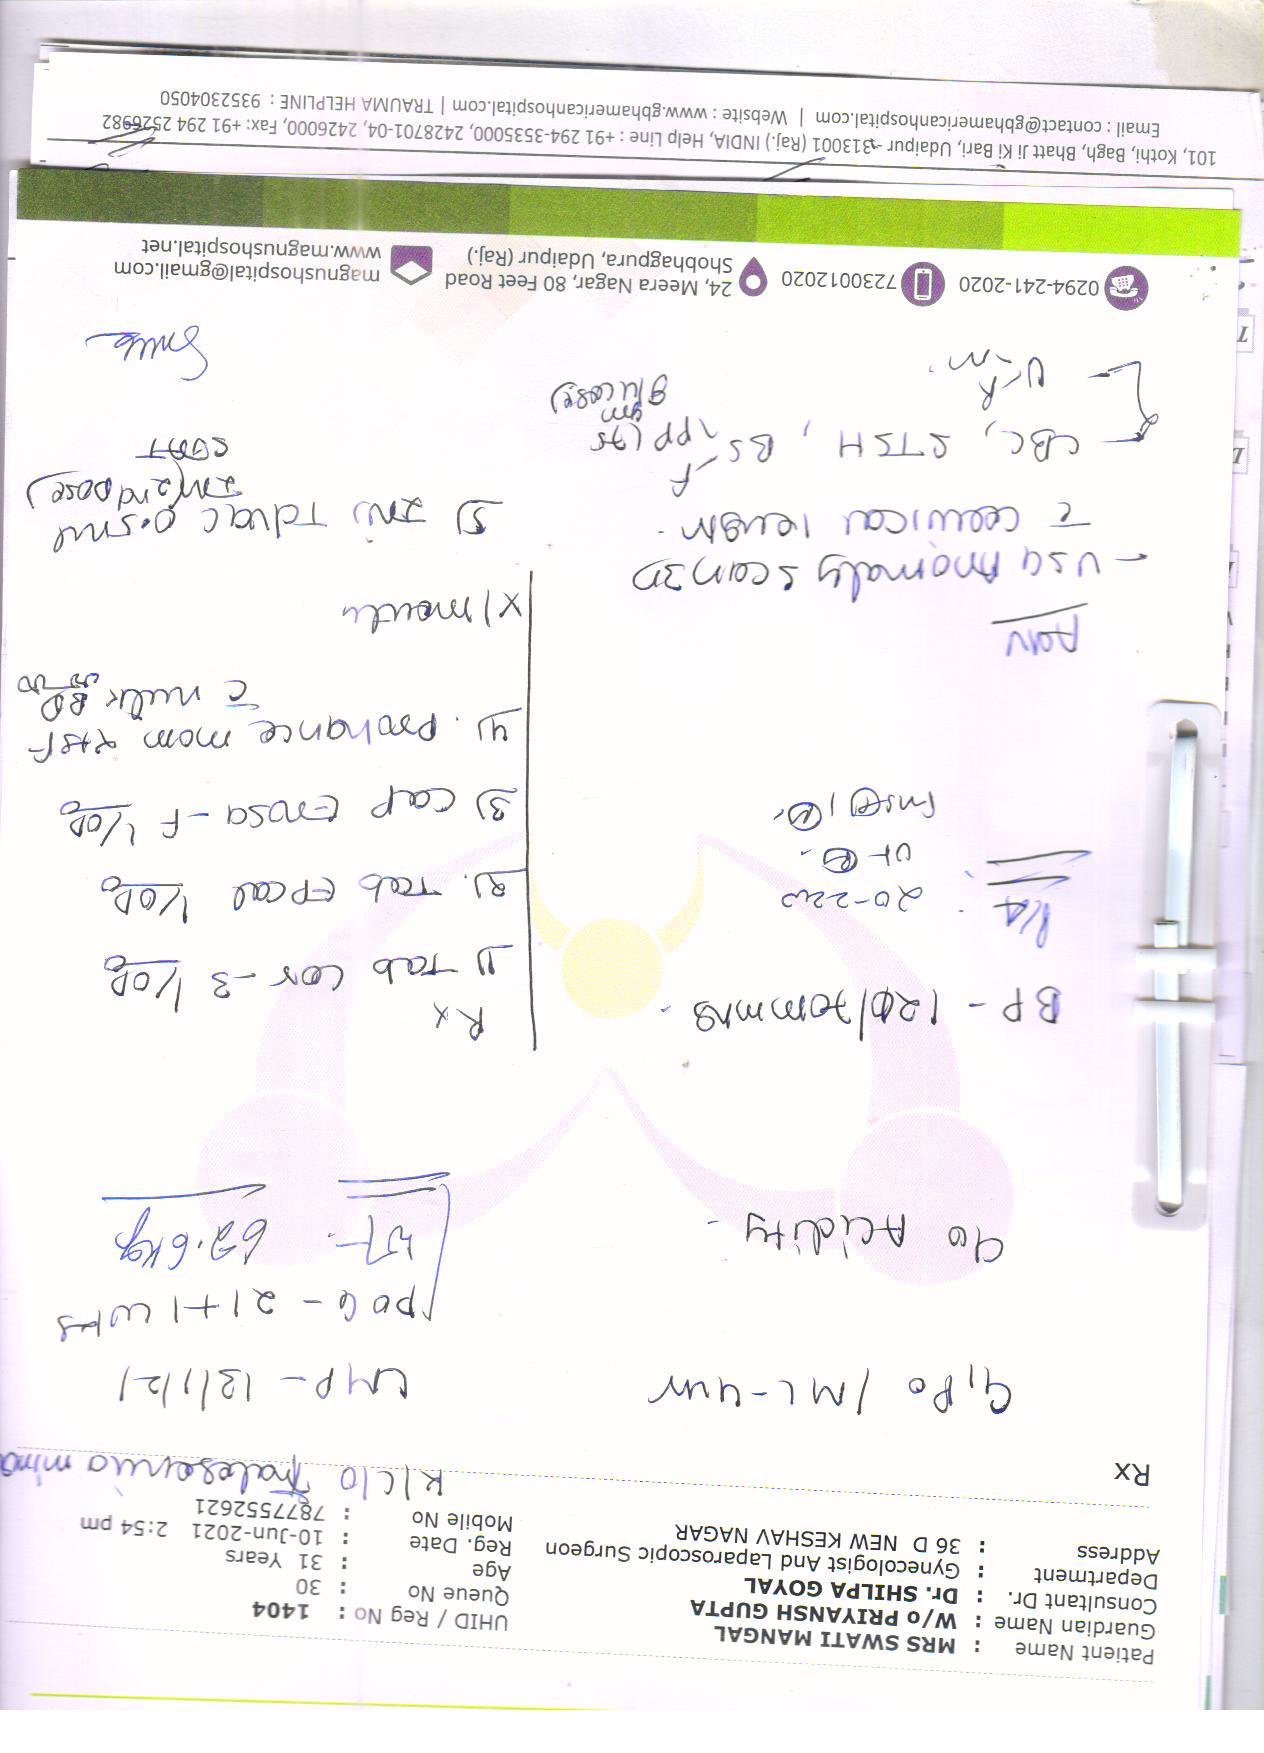 Patient Name : MRS SWATI MANGAL
Guardian Name : W/o PRIYANSH GUPTA
Consultant Dr. : Dr. SHILPA GOYAL
Department : Gynecologist And Laparoscopic Surgeon
Address : 36 D NEW KESHAV NAGAR
UHID / Reg No : 1404
Queue No : 30
Age : 31 Years
Reg. Date : 10-Jun-2021 2:54 pm
Mobile No : 7877552621
Rx
K/C/O Thalesemia mino
G1P0 / ML-4yr
LMP - 13/1/21
POG - 21+1 wks
c/o Acidity
WT - 62.6kg
BP - 120/70mmHg
P/A 20-22w
Rx
1) Tab cor-3 1/OD
2) Tab EPcal 1/OD
3) cap Ensa-F 1/OD
4) Prohance mom 2tsf
c milk BD
x/month
Adv
- USG Anomaly scan 3D
c cervical length
- CBC, STSH, BS F
PP (75
gm
glucose)
- U R
M
5) INJ Tdvac 0.5ml
IM (2nd dose)
0294-241-2020
7230012020
24, Meera Nagar, 80 Feet Road
Shobhagpura, Udaipur (Raj.)
magnushospital@gmail.com
www.magnushospital.net
101, Kothi, Bagh, Bhatt Ji Ki Bari, Udaipur - 313001 (Raj.) INDIA, Help Line : +91 294-3535000, 2428701-04, 2426000, Fax: +91 294 2526982
Email : contact@gbhamericanhospital.com | Website : www.gbhamericanhospital.com | TRAUMA HELPLINE : 9352304050